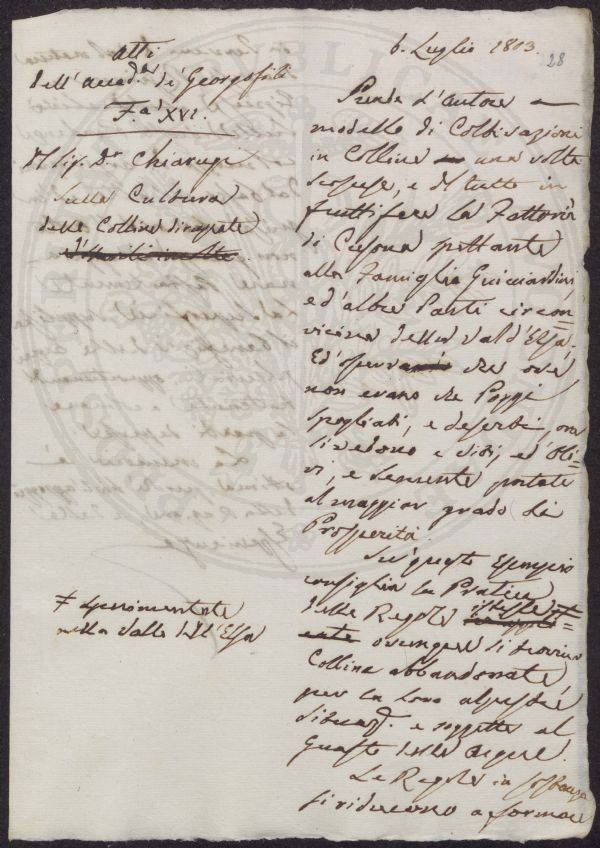 6. Luglio 1803.
28
Atti
dell'accad.a de' Georgofili
F.a XVI.
Del Sig. Dr. Chiarugi
Sulla Cultura
delle Colline dirupate
Prende l'autore
modello di Coltivazione
in Colline una volta
scoscese, e del tutto in
fruttifere la Fattoria
di Cusona spettante
alla Famiglia Guicciardini,
e d'altre Parti circon=
vicine della Val d'Elsa.
Ed osserva che ove
non erano che Poggi
spogliati, e deserti, ora
si vedono e viti, ed oli=
vi, e semente portate
al maggior grado di
Prosperità.
Su questo Esempio
consiglia la Pratica
delle Regole istesse
ovunque si trovino
Colline abbandonate
per la loro alpestre
situaz. e soggette al
Guasto delle acque.
Le Regole in sostanza
si riducono a formare
sperimentate
nella Valle dell'Elsa